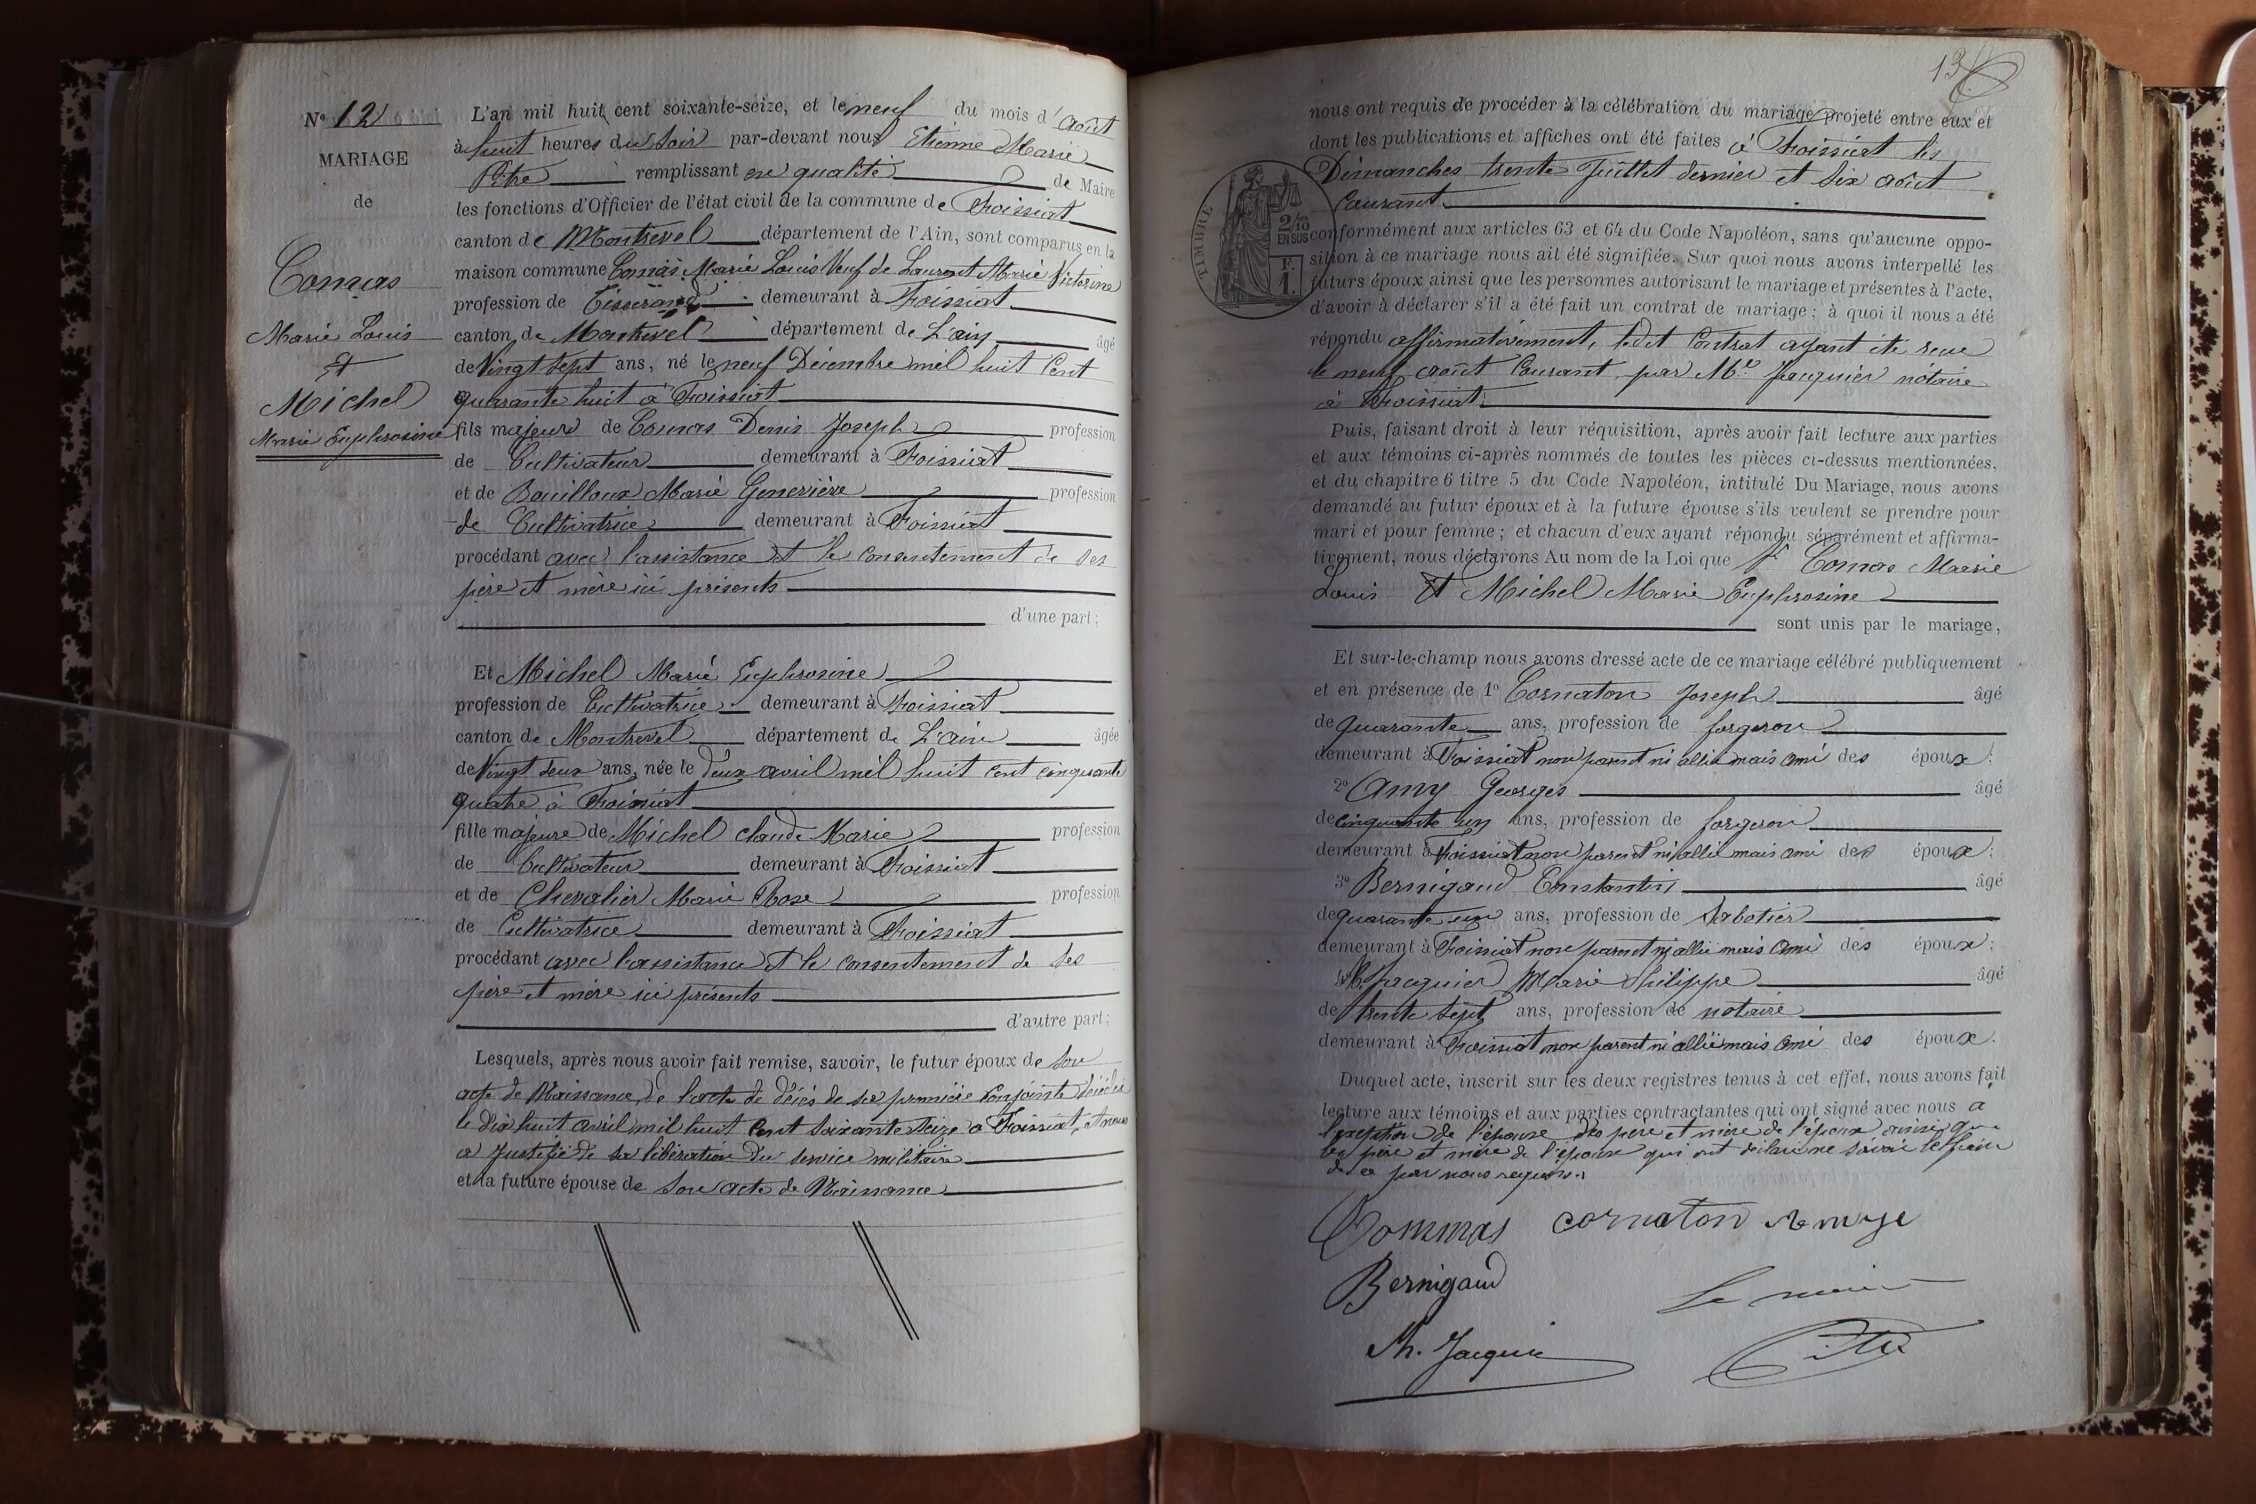 N° 12
MARIAGE
de
Comas
Marie Louis
Et
Michel
Marie Euphrosine
L'an mil huit cent soixante-seize, et le neuf du mois d'août
à huit heures du soir par-devant nous Etienne Marie
Pitre remplissant en qualité de Maire
les fonctions d'Officier de l'état civil de la commune de Foissiat
canton de Montrevel département de l'Ain, sont comparus en la
maison commune Comas Marie Louis Veuf de Laurent Marie Victorine
profession de Tisserand demeurant à Foissiat
canton de Montrevel département de L'ain âgé
de Vingt sept ans, né le neuf Décembre mil huit Cent
quarante huit à Foissiat
fils majeur de Comas Denis Joseph profession
de Cultivateur demeurant à Foissiat
et de Bouilloux Marie Geneviève profession
de Cultivatrice demeurant à Foissiat
procédant avec l'assistance et le consentement de ses
père et mère ici présents
d'une part;
Et Michel Marie Euphrosine
profession de Cultivatrice demeurant à Foissiat
canton de Montrevel département de L'ain âgée
de Vingt deux ans, née le deux avril mil huit cent cinquante
quatre à Foissiat
fille majeure de Michel claude Marie profession
de Cultivateur demeurant à Foissiat
et de Chevalier Marie Rose profession
de Cultivatrice demeurant à Foissiat
procédant avec l'assistance et le consentement de ses
père et mère ici présents
d'autre part;
Lesquels, après nous avoir fait remise, savoir, le futur époux de son
acte de Naissance, de l'acte de décès de sa première Conjointe décédée
le dix huit avril mil huit Cent Soixante Seize à Foissiat, et nous
a justifié de sa libération du service militaire
et la future épouse de son acte de Naissance
13
nous ont requis de procéder à la célébration du mariage projeté entre eux et
dont les publications et affiches ont été faites à Foissiat les
Dimanches trente Juillet dernier et Six août
Courant
TIMBRE
2/10
EN SUS
conformément aux articles 63 et 64 du Code Napoléon, sans qu'aucune oppo-
sition à ce mariage nous ait été signifiée. Sur quoi nous avons interpellé les
futurs époux ainsi que les personnes autorisant le mariage et présentes à l'acte,
d'avoir à déclarer s'il a été fait un contrat de mariage: à quoi il nous a été
répondu affirmativement, ledit Contrat ayant été recu
le neuf août Courant par Me Jacquier notaire
à Foissiat
Puis, faisant droit à leur réquisition, après avoir fait lecture aux parties
et aux témoins ci-après nommés de toutes les pièces ci-dessus mentionnées,
et du chapitre 6 titre 5 du Code Napoléon, intitulé Du Mariage, nous avons
demandé au futur époux et à la future épouse s'ils veulent se prendre pour
mari et pour femme; et chacun d'eux ayant répondu séparément et affirma-
tivement, nous déclarons Au nom de la Loi que Comas Marie
Louis Et Michel Marie Euphrosine
sont unis par le mariage,
Et sur-le-champ nous avons dressé acte de ce mariage célébré publiquement
et en présence de 1° Cornaton Joseph âgé
de quarante ans, profession de forgeron
demeurant à Foissiat non parent ni allié mais ami des époux;
2° Amy Georges âgé
de cinquante un ans, profession de forgeron
demeurant à Foissiat non parent ni allié mais ami des époux;
3° Bernigaud Constantin âgé
de quarante un ans, profession de Sabotier
demeurant à Foissiat non parent ni allié mais ami des époux;
Jacquier Marie Philippe âgé
de trente sept ans, profession de notaire
demeurant à Foissiat non parent ni allié mais ami des époux.
Duquel acte, inscrit sur les deux registres tenus à cet effet, nous avons fait
lecture aux témoins et aux parties contractantes qui ont signé avec nous à
l'exception de l'épouse des père et mère de l'époux ainsi que
les père et mère de l'épouse qui ont déclaré ne savoir le faire
de ce par nous requis.
Commas cornaton
Bernigaud Le maire
Ph. Jacquier Pitre